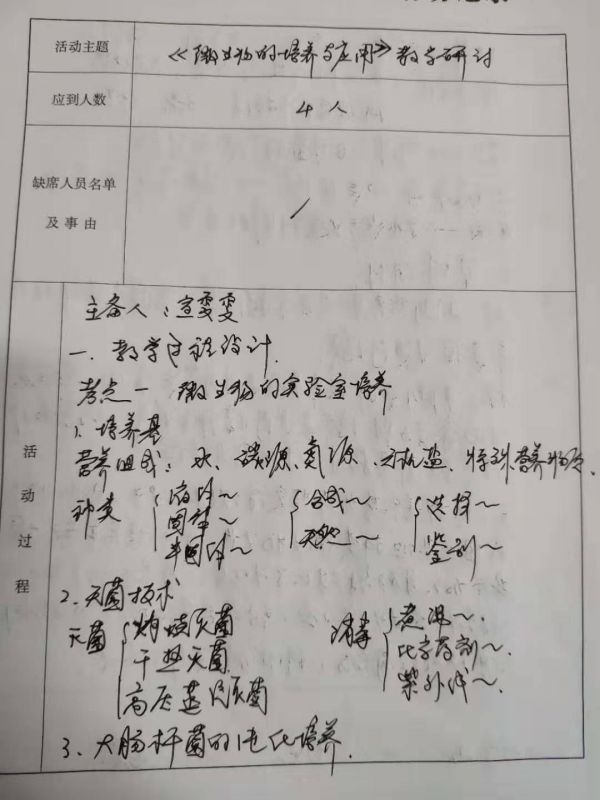 活动主题 《微生物的培养与应用》教学研讨
应到人数 4人
缺席人员名单
及事由 /
活动过程
主备人：宣雯雯
一. 教学过程设计.
考点一 微生物的实验室培养
1. 培养基
营养组成：水、碳源、氮源、无机盐、特殊营养物质.
种类 液体～ 合成～ 选择～
固体～ 天然～ 鉴别～
半固体～
2. 灭菌技术
灭菌 灼烧灭菌 消毒 煮沸～.
干热灭菌 化学药剂～.
高压蒸汽灭菌 紫外线～.
3. 大肠杆菌的纯化培养.